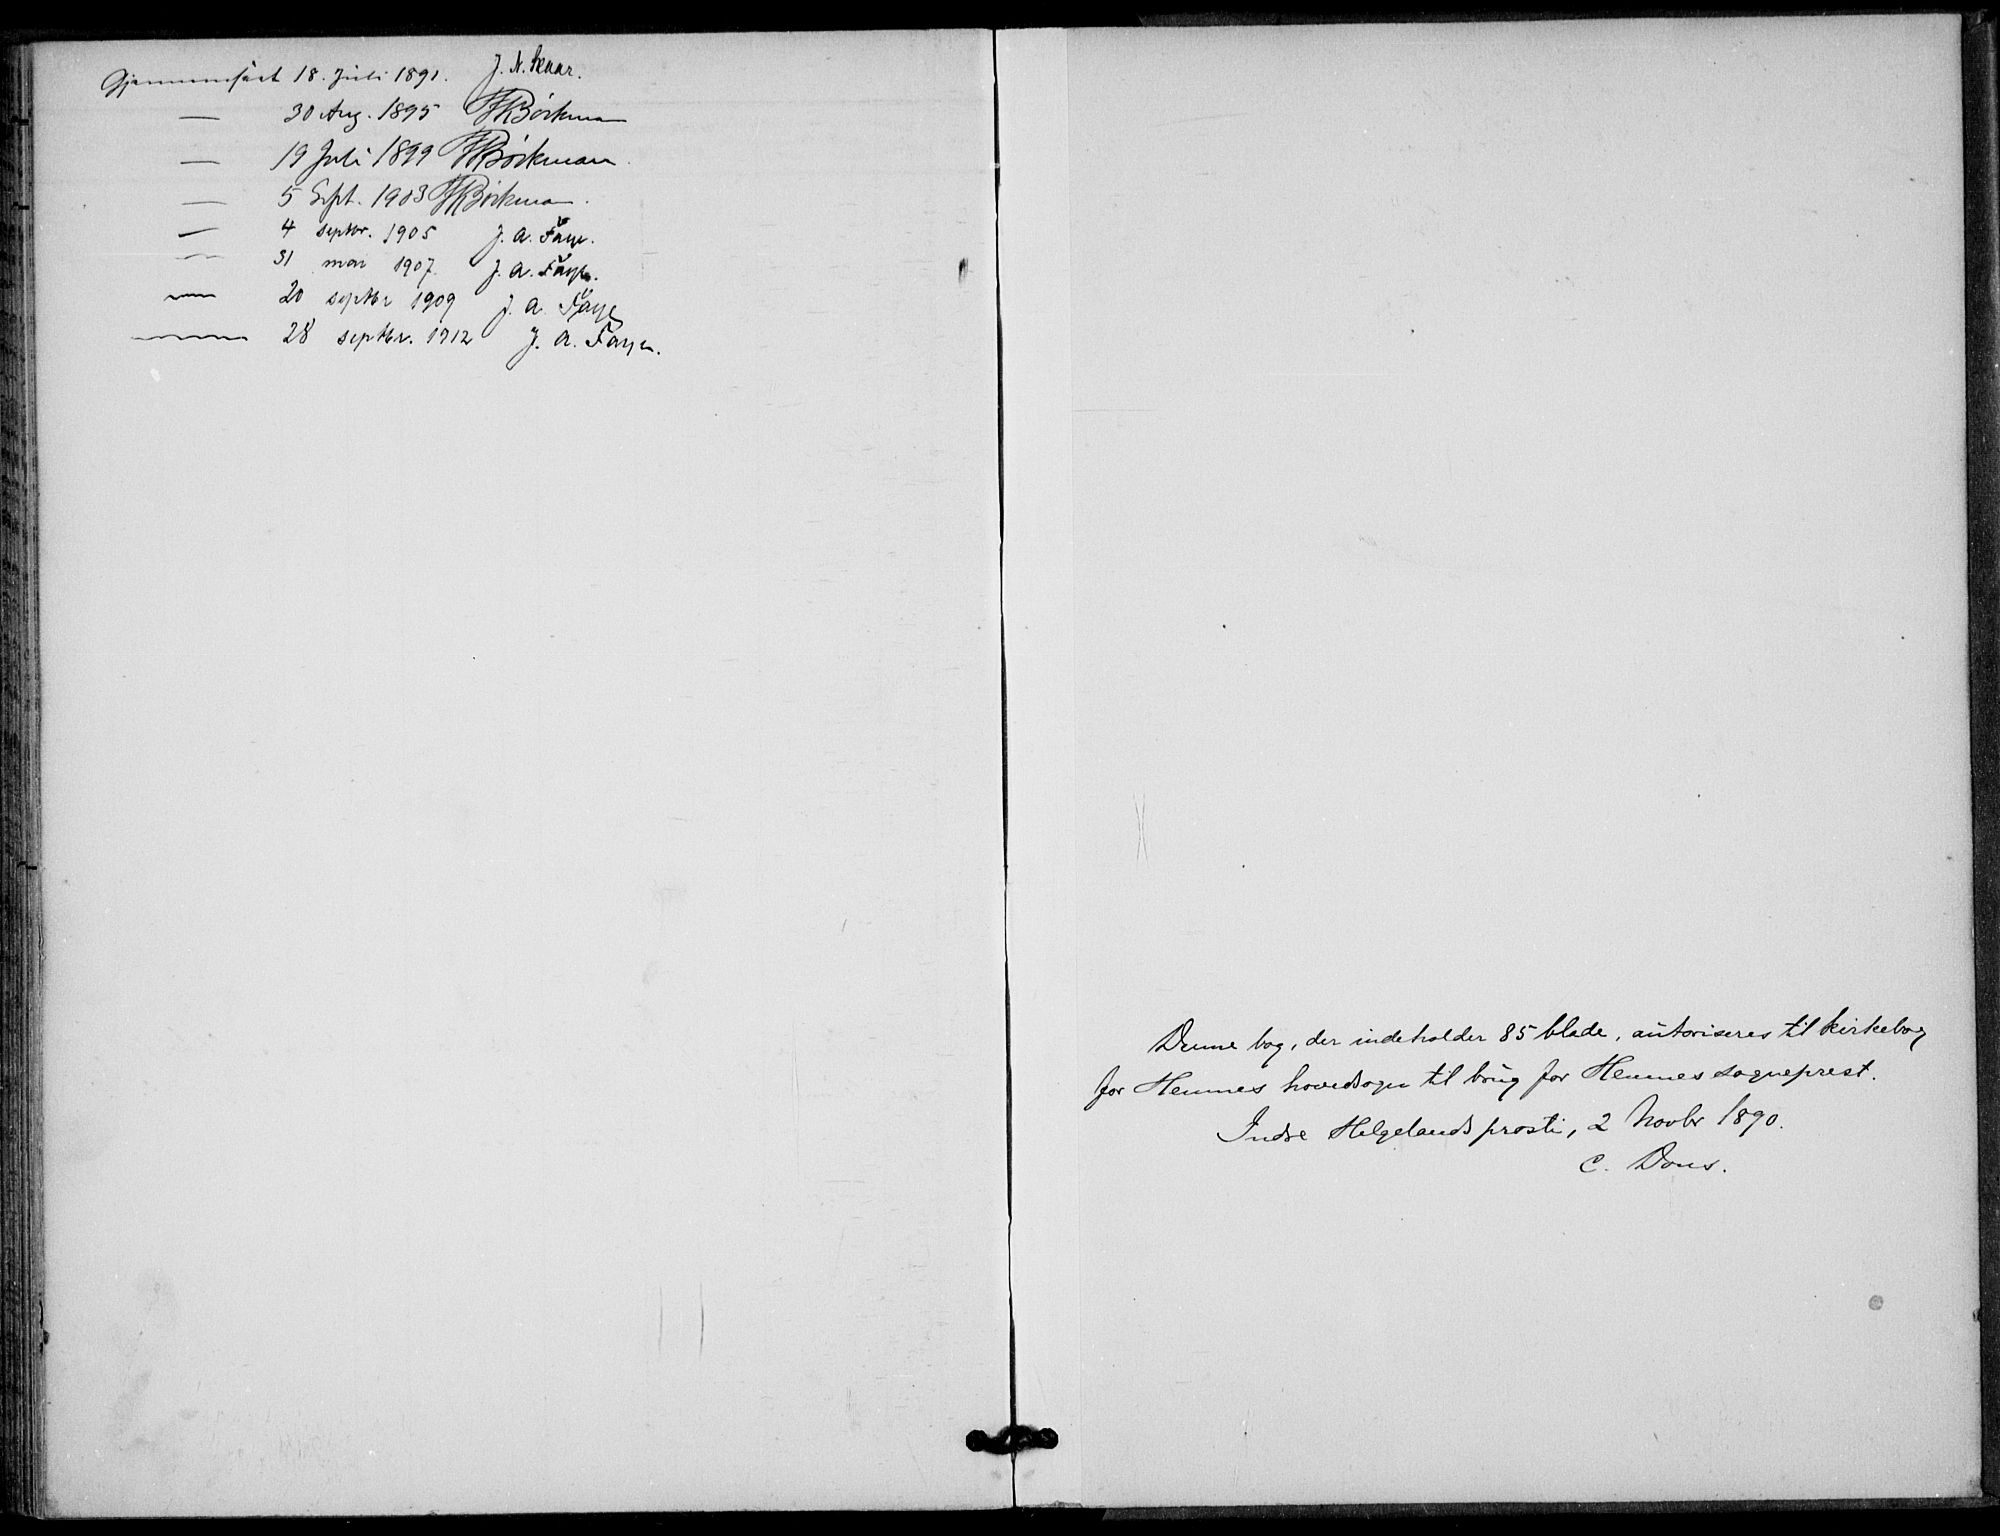 Gjennemseet 18. Juli 1891. J. N. Skaar.
— 30 Aug. 1895 Böckman
— 19 Juli 1899 Böckman
— 5 Sept. 1903 Böckman.
— 4 septbr. 1905 J. A. Faye.
— 31 mai 1907. J. A. Faye.
— 20 septbr 1909 J. A. Faye
— 28 septbr. 1912 J. A. Faye.
Denne bog, der indeholder 85 blade, autoriseres til kirkebog
for Hemnes hovedsogn til brug for Hemnes sogneprest.
Indre Helgelands prosti, 2 Novbr 1890.
C. Dons.